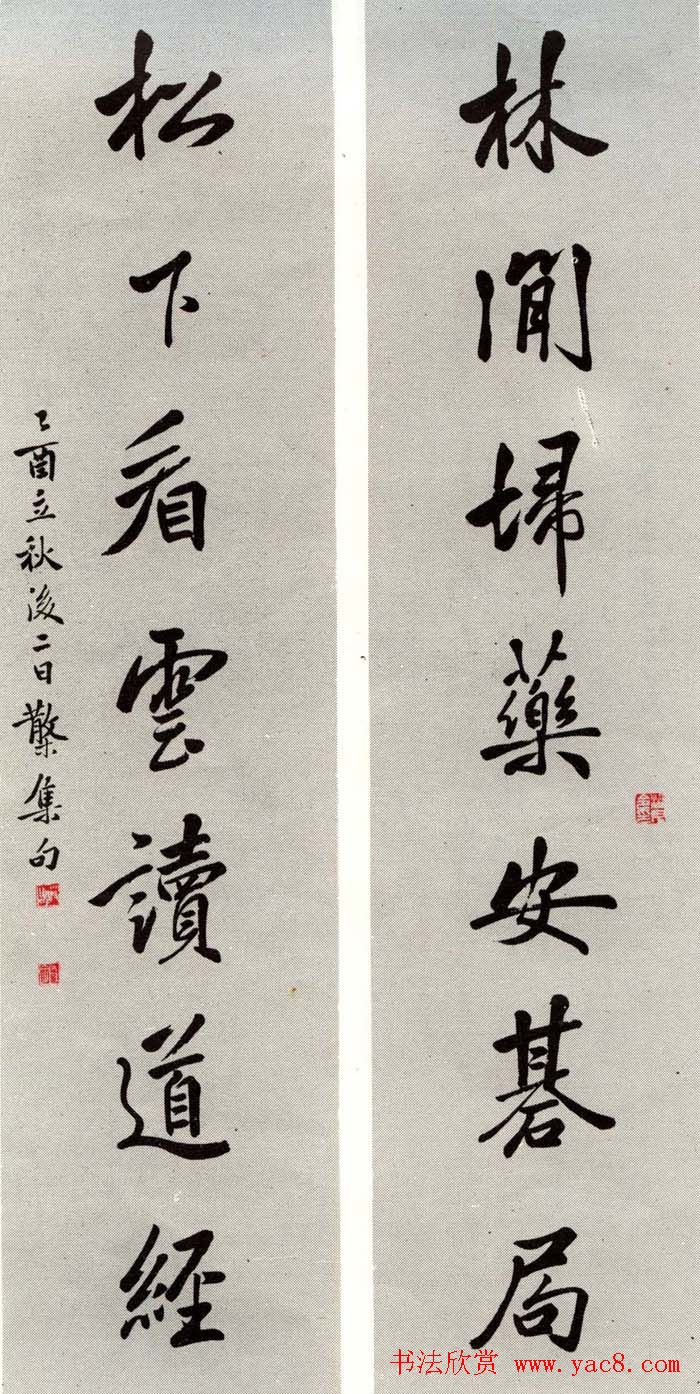 林閒埽藥安碁局
松下看雲讀道經
乙酉立秋後二日集句
书法欣赏 www.yac8.com